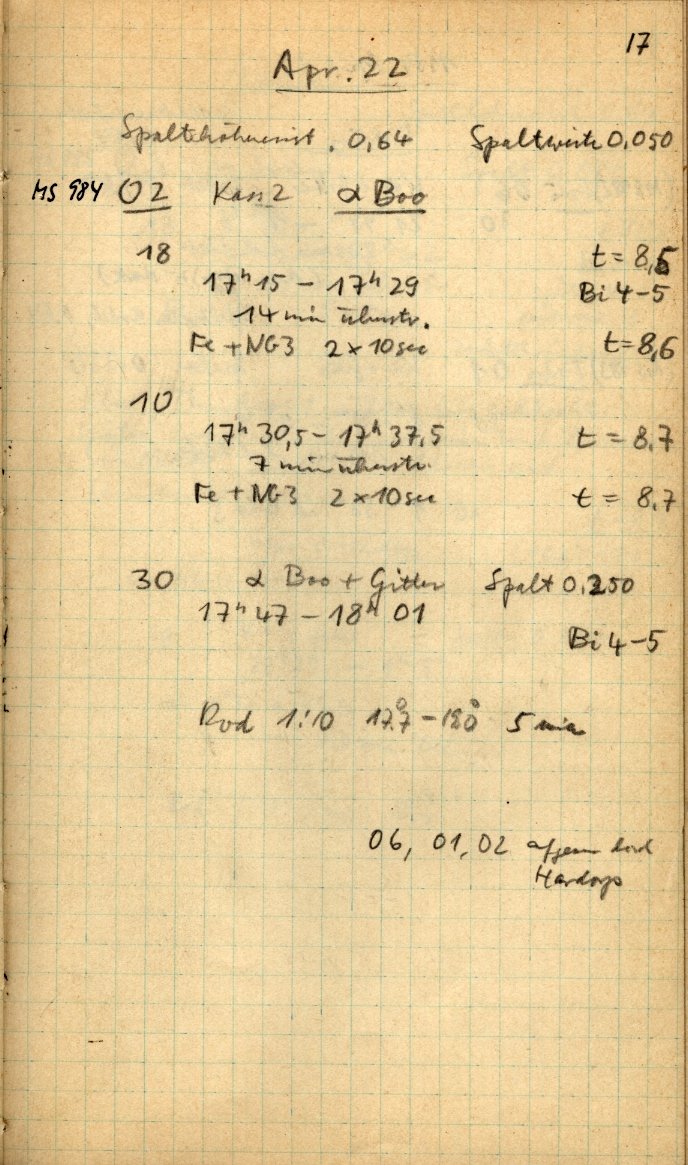 17
Apr. 22
Spalthöheneinst. 0,64 Spaltweite 0,050
MS 984 02 Kass 2 α Boo
18 t = 8,5
17ʰ 15 – 17ʰ 29 Bi 4–5
14 min überstr.
Fe + NG3 2 × 10 sec t = 8,6
10
17ʰ 30,5 – 17ʰ 37,5 t = 8,7
7 min überstr.
Fe + NG3 2 × 10 sec t = 8,7
30 α Boo + Gitter Spalt 0,250
17ʰ 47 – 18ʰ 01
Bi 4–5
Rod 1:10 5 min
06, 01, 02 durch